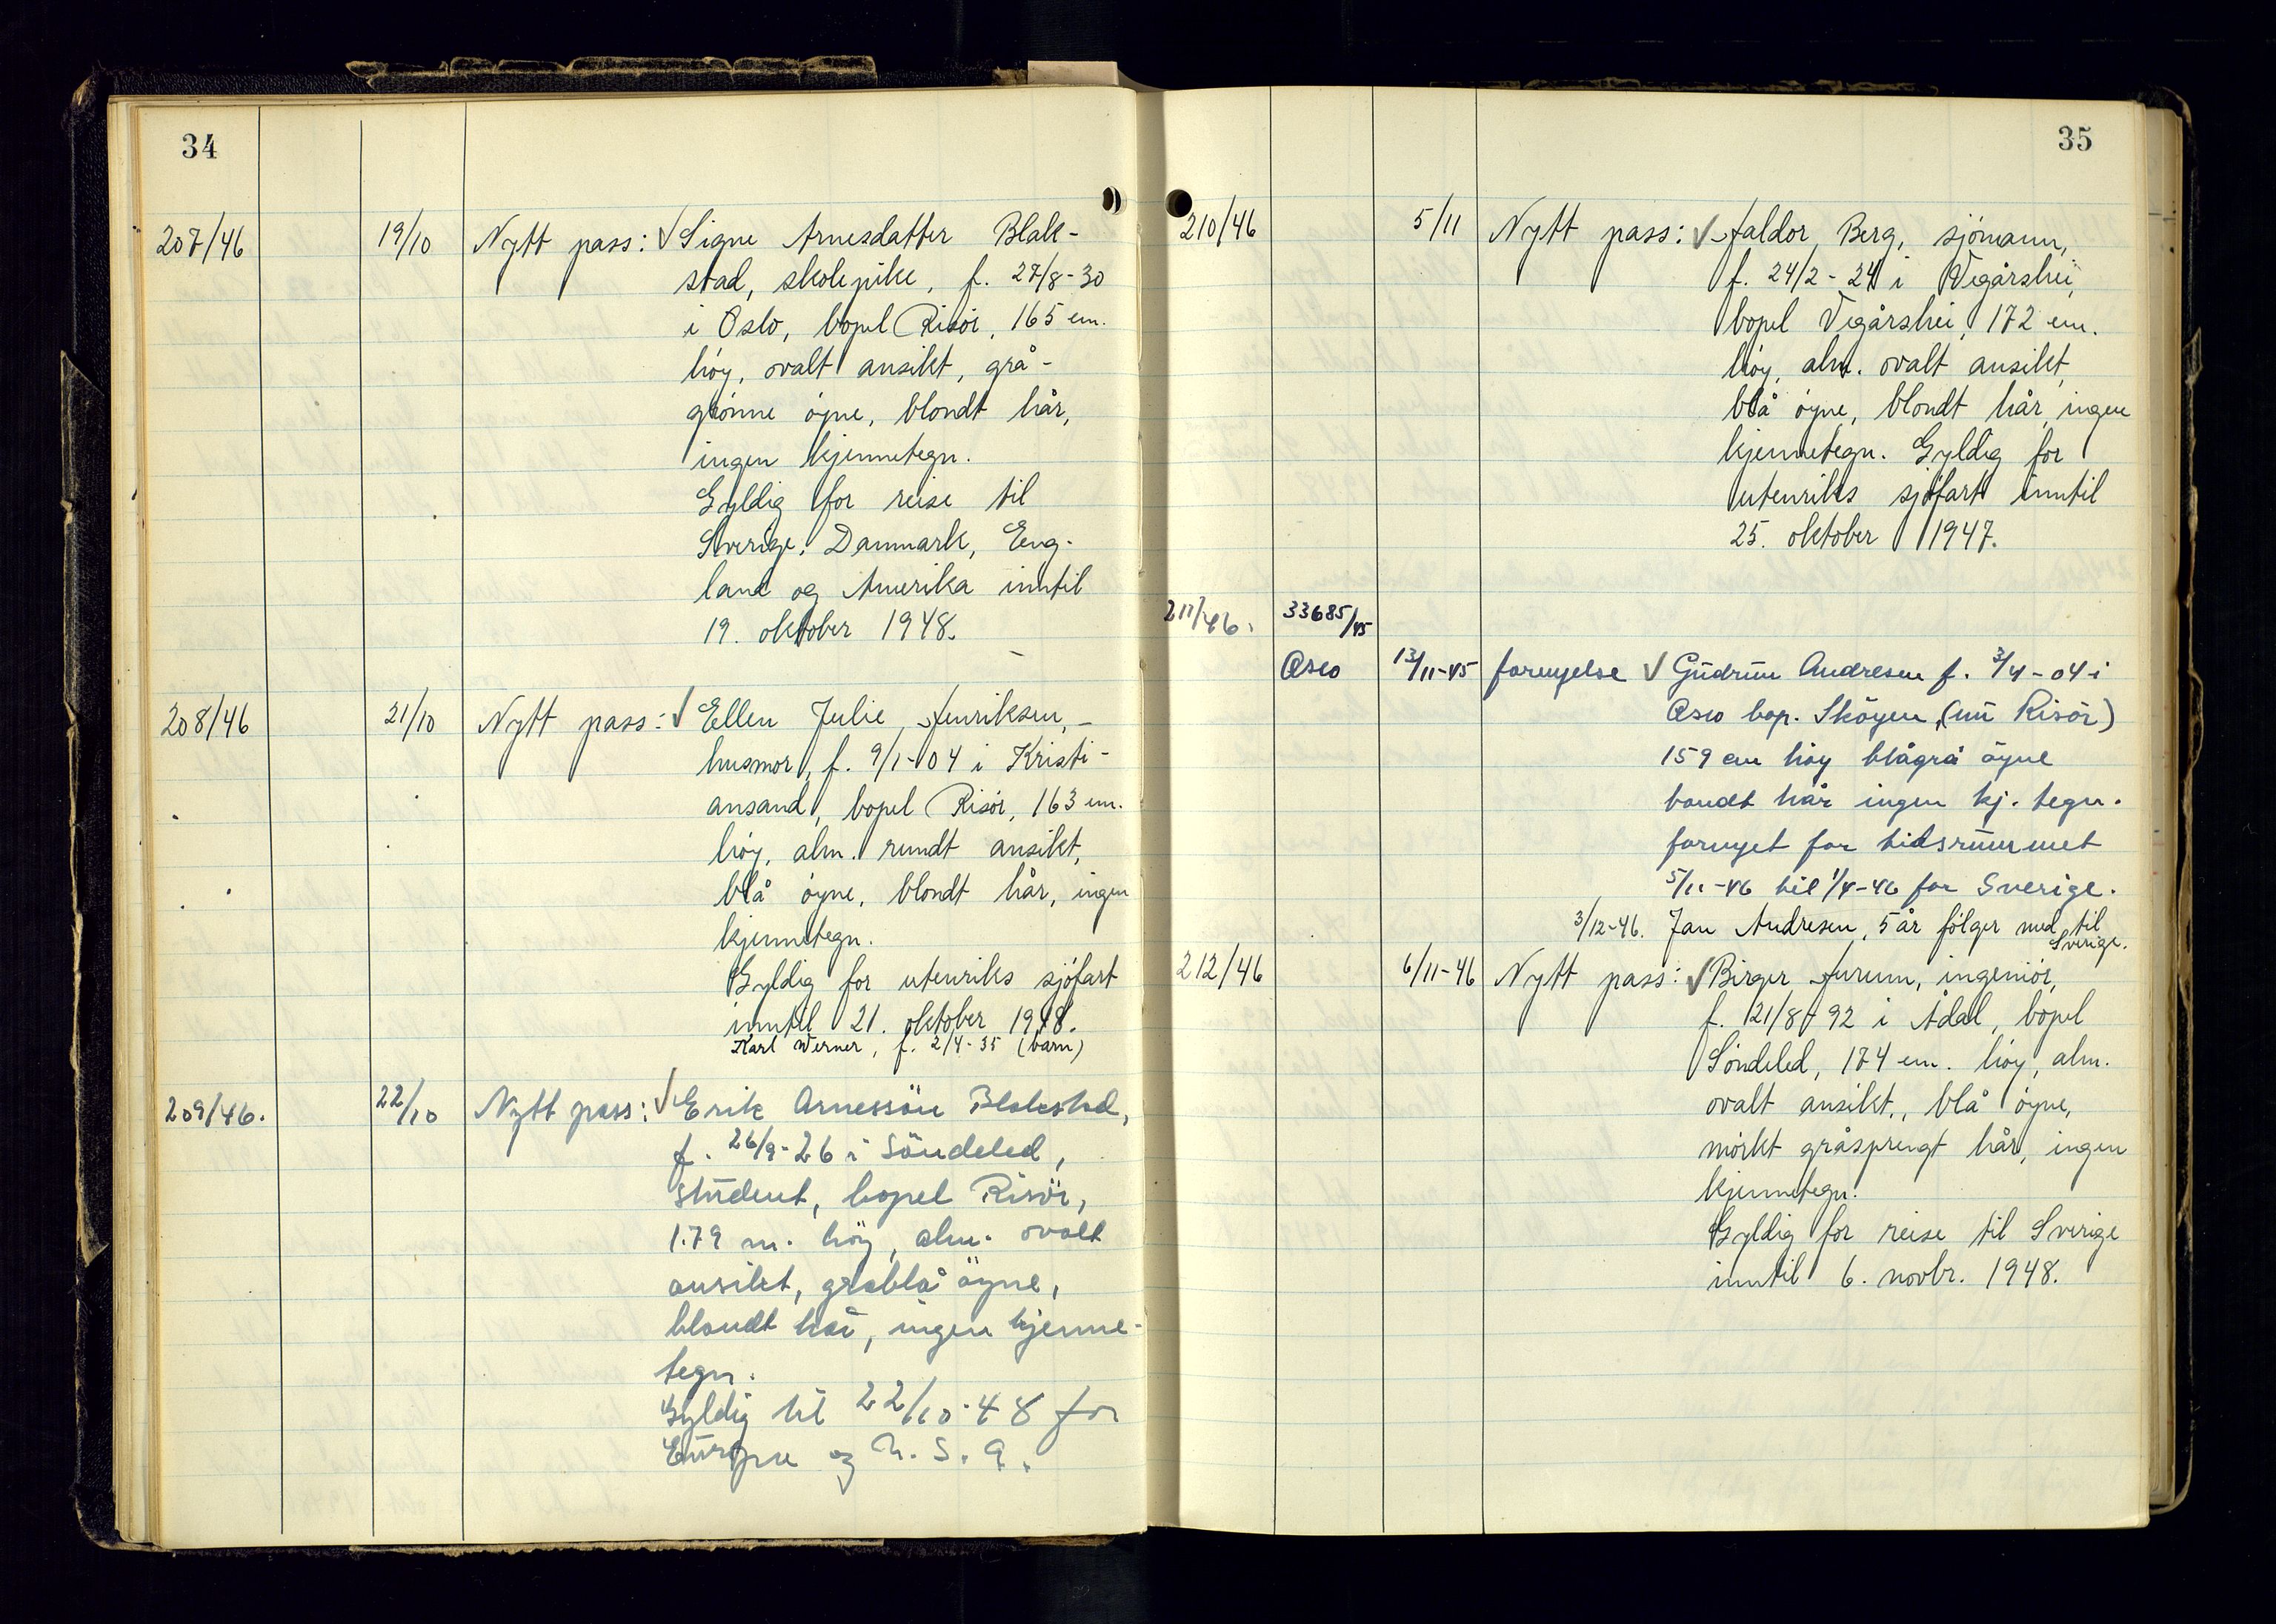 34
207/46 19/10 Nytt pass: √ Signe Arnesdatter Blak-
stad, skolepike, f. 27/8-30
i Oslo, bopel Risør, 165 cm.
høy, ovalt ansikt, grå-
grønne øyne, blondt hår,
ingen kjennetegn.
Gyldig for reise til
Sverige, Danmark, Eng-
land og Amerika inntil
19. oktober 1948.
208/46 21/10 Nytt pass: √ Ellen Julie Henriksen,
husmor, f. 9/1-04 i Kristi-
ansand, bopel Risør, 163 cm.
høy, alm. rundt ansikt,
blå øyne, blondt hår, ingen
kjennetegn.
Gyldig for utenriks sjøfart
inntil 21. oktober 1948.
Karl Werner, f. 2/4-35 (barn)
209/46. 22/10 Nytt pass: √ Erik Arnessön Blakstad,
f. 26/9-26 i Söndeled,
student, bopel Risör,
1.79 m. höy, alm. ovalt
ansikt, gråblå öyne,
blondt hår, ingen kjenne-
tegn.
Gyldig til 22/10-48 for
Europa og U.S.A.
35
210/46 5/11 Nytt pass: √ Haldor Berg, sjömann,
f. 24/2-24 i Vegårshei,
bopel Vegårshei, 172 cm.
høy, alm. ovalt ansikt,
blå øyne, blondt hår, ingen
kjennetegn. Gyldig for
utenriks sjøfart inntil
25. oktober 1947.
211/46. 33685/45
Oslo 13/11-45 fornyelse √ Gudrun Andresen f. 3/4-04 i
Oslo bop. Sköyen, (nu Risör)
159 cm höy blågrå öyne
blondt hår ingen kj. tegn.
fornyet for tidsrummet
5/11-46 til 1/4-46 for Sverige.
3/12-46. Jan Andresen, 5 år følger med til
Sverige.
212/46 6/11-46 Nytt pass: √ Birger Hurum, ingeniør,
f. 21/8-92 i Ådal, bopel
Søndeled, 174 cm. høy, alm.
ovalt ansikt, blå øyne,
mørkt gråsprengt hår, ingen
kjennetegn.
Gyldig for reise til Sverige
inntil 6. novbr. 1948.